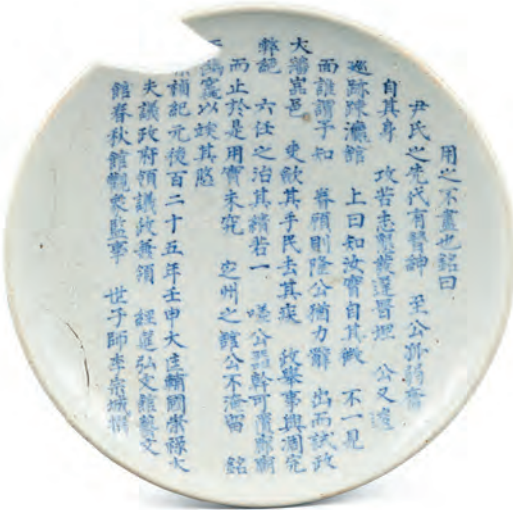 用之不盡也銘曰
尹氏之先代有簪紳 至公孤弱奮
自其身 攻苦志 公又遠
巡跡踈瀛館 上曰知汝實自其微 不一見
而誰謂予知 眷顧則隆公猶力辭 出而試政
大藩岩邑 吏歛其手民去其瘼 政擧事興凋完
弊 六任之治其績若一 嗟公器幹可寘廊廟
而止於是用實未究 定州之館公不淹留 銘
以竢其
禎紀元後百二十五年壬申大匡輔國崇祿大
夫議政府領議政兼領 經筵弘文館藝文
館春秋館觀象監事 世子師李宗城撰